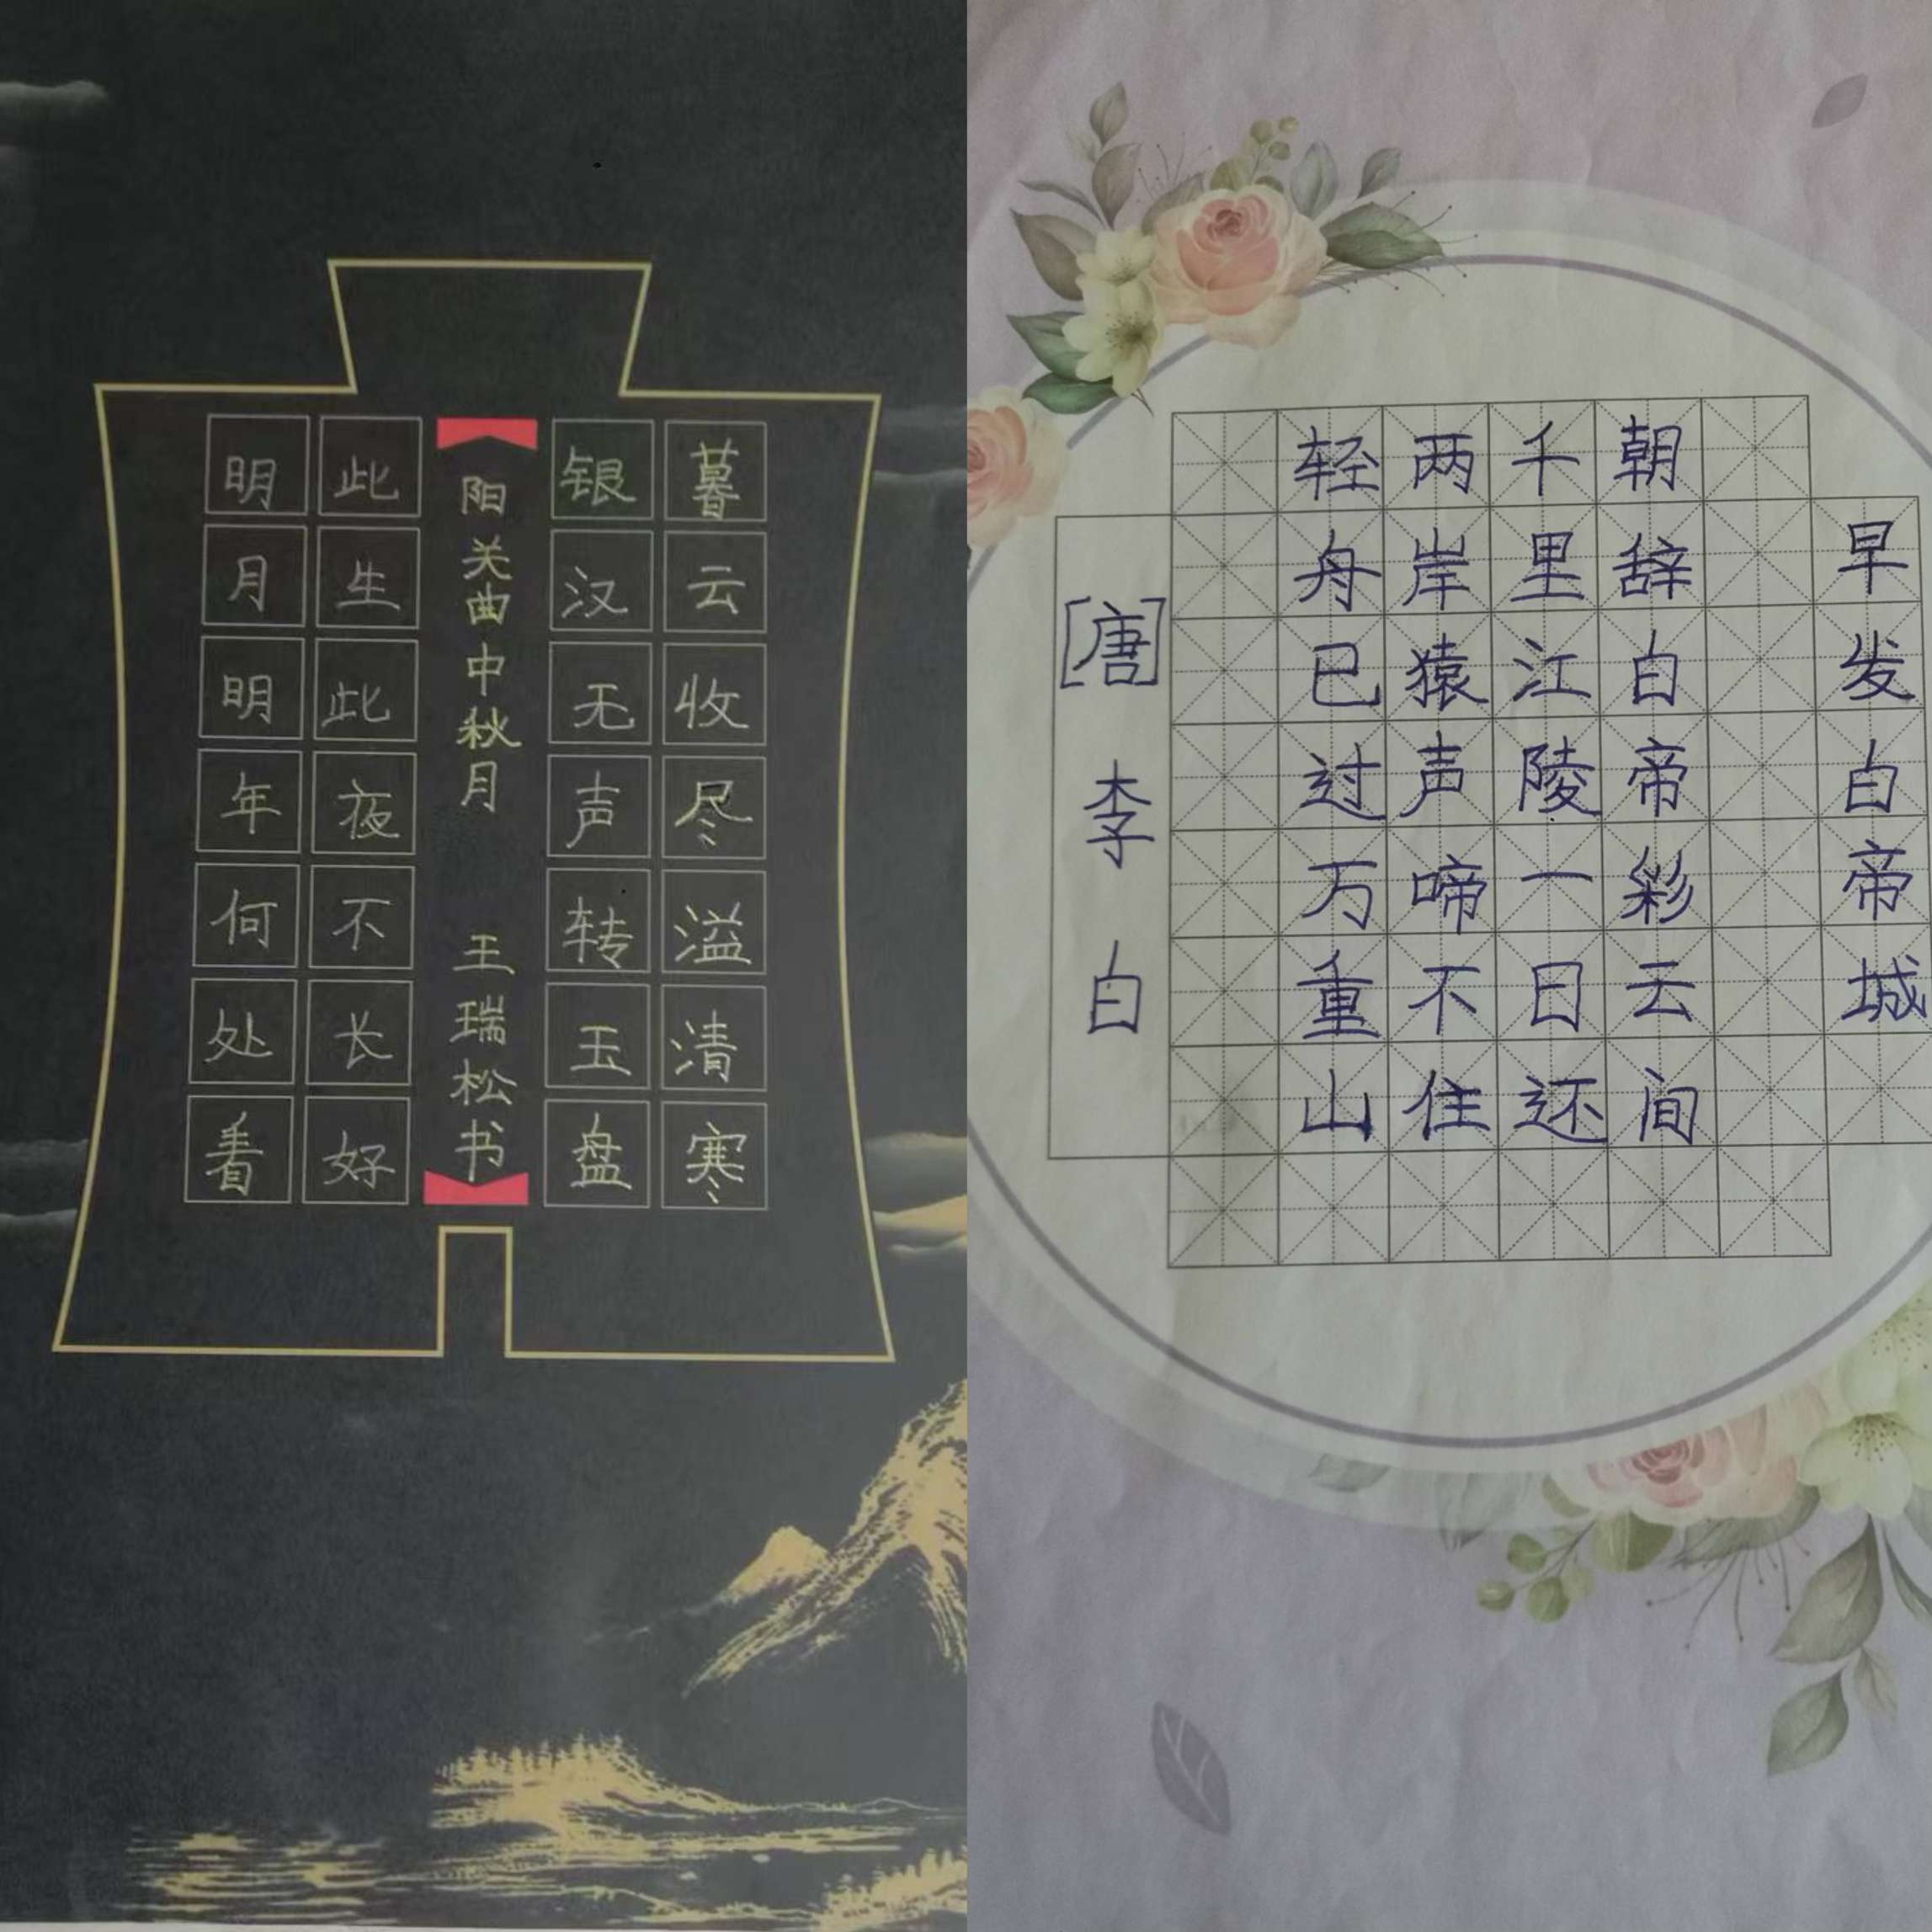 暮云收尽溢清寒
银汉无声转玉盘
阳关曲中秋月 王瑞松书
此生此夜不长好
明月明年何处看
早发白帝城
朝辞白帝彩云间
千里江陵一日还
两岸猿声啼不住
轻舟已过万重山
[唐] 李白